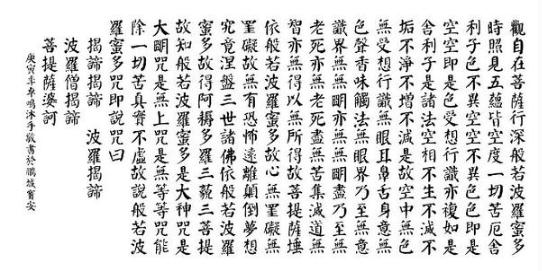 觀自在菩薩行深般若波羅蜜多
時照見五蘊皆空度一切苦厄舍
利子色不異空空不異色色即是
空空即是色受想行識亦複如是
舍利子是諸法空相不生不滅不
垢不淨不增不減是故空中無色
無受想行識無眼耳鼻舌身意無
色聲香味觸法無眼界乃至無意
識界無無明亦無無明盡乃至無
老死亦無老死盡無苦集滅道無
智亦無得以無所得故菩提薩埵
依般若波羅蜜多故心無罣礙無
罣礙故無有恐怖遠離顛倒夢想
究竟涅盤三世諸佛依般若波羅
蜜多故得阿耨多羅三藐三菩提
故知般若波羅蜜多是大神咒是
大明咒是無上咒是無等等咒能
除一切苦真實不虛故說般若波
羅蜜多咒即說咒曰
揭諦揭諦 波羅揭諦
波羅僧揭諦
菩提薩婆訶
庚寅年卓鳴沐手敬書於鵬城寶安